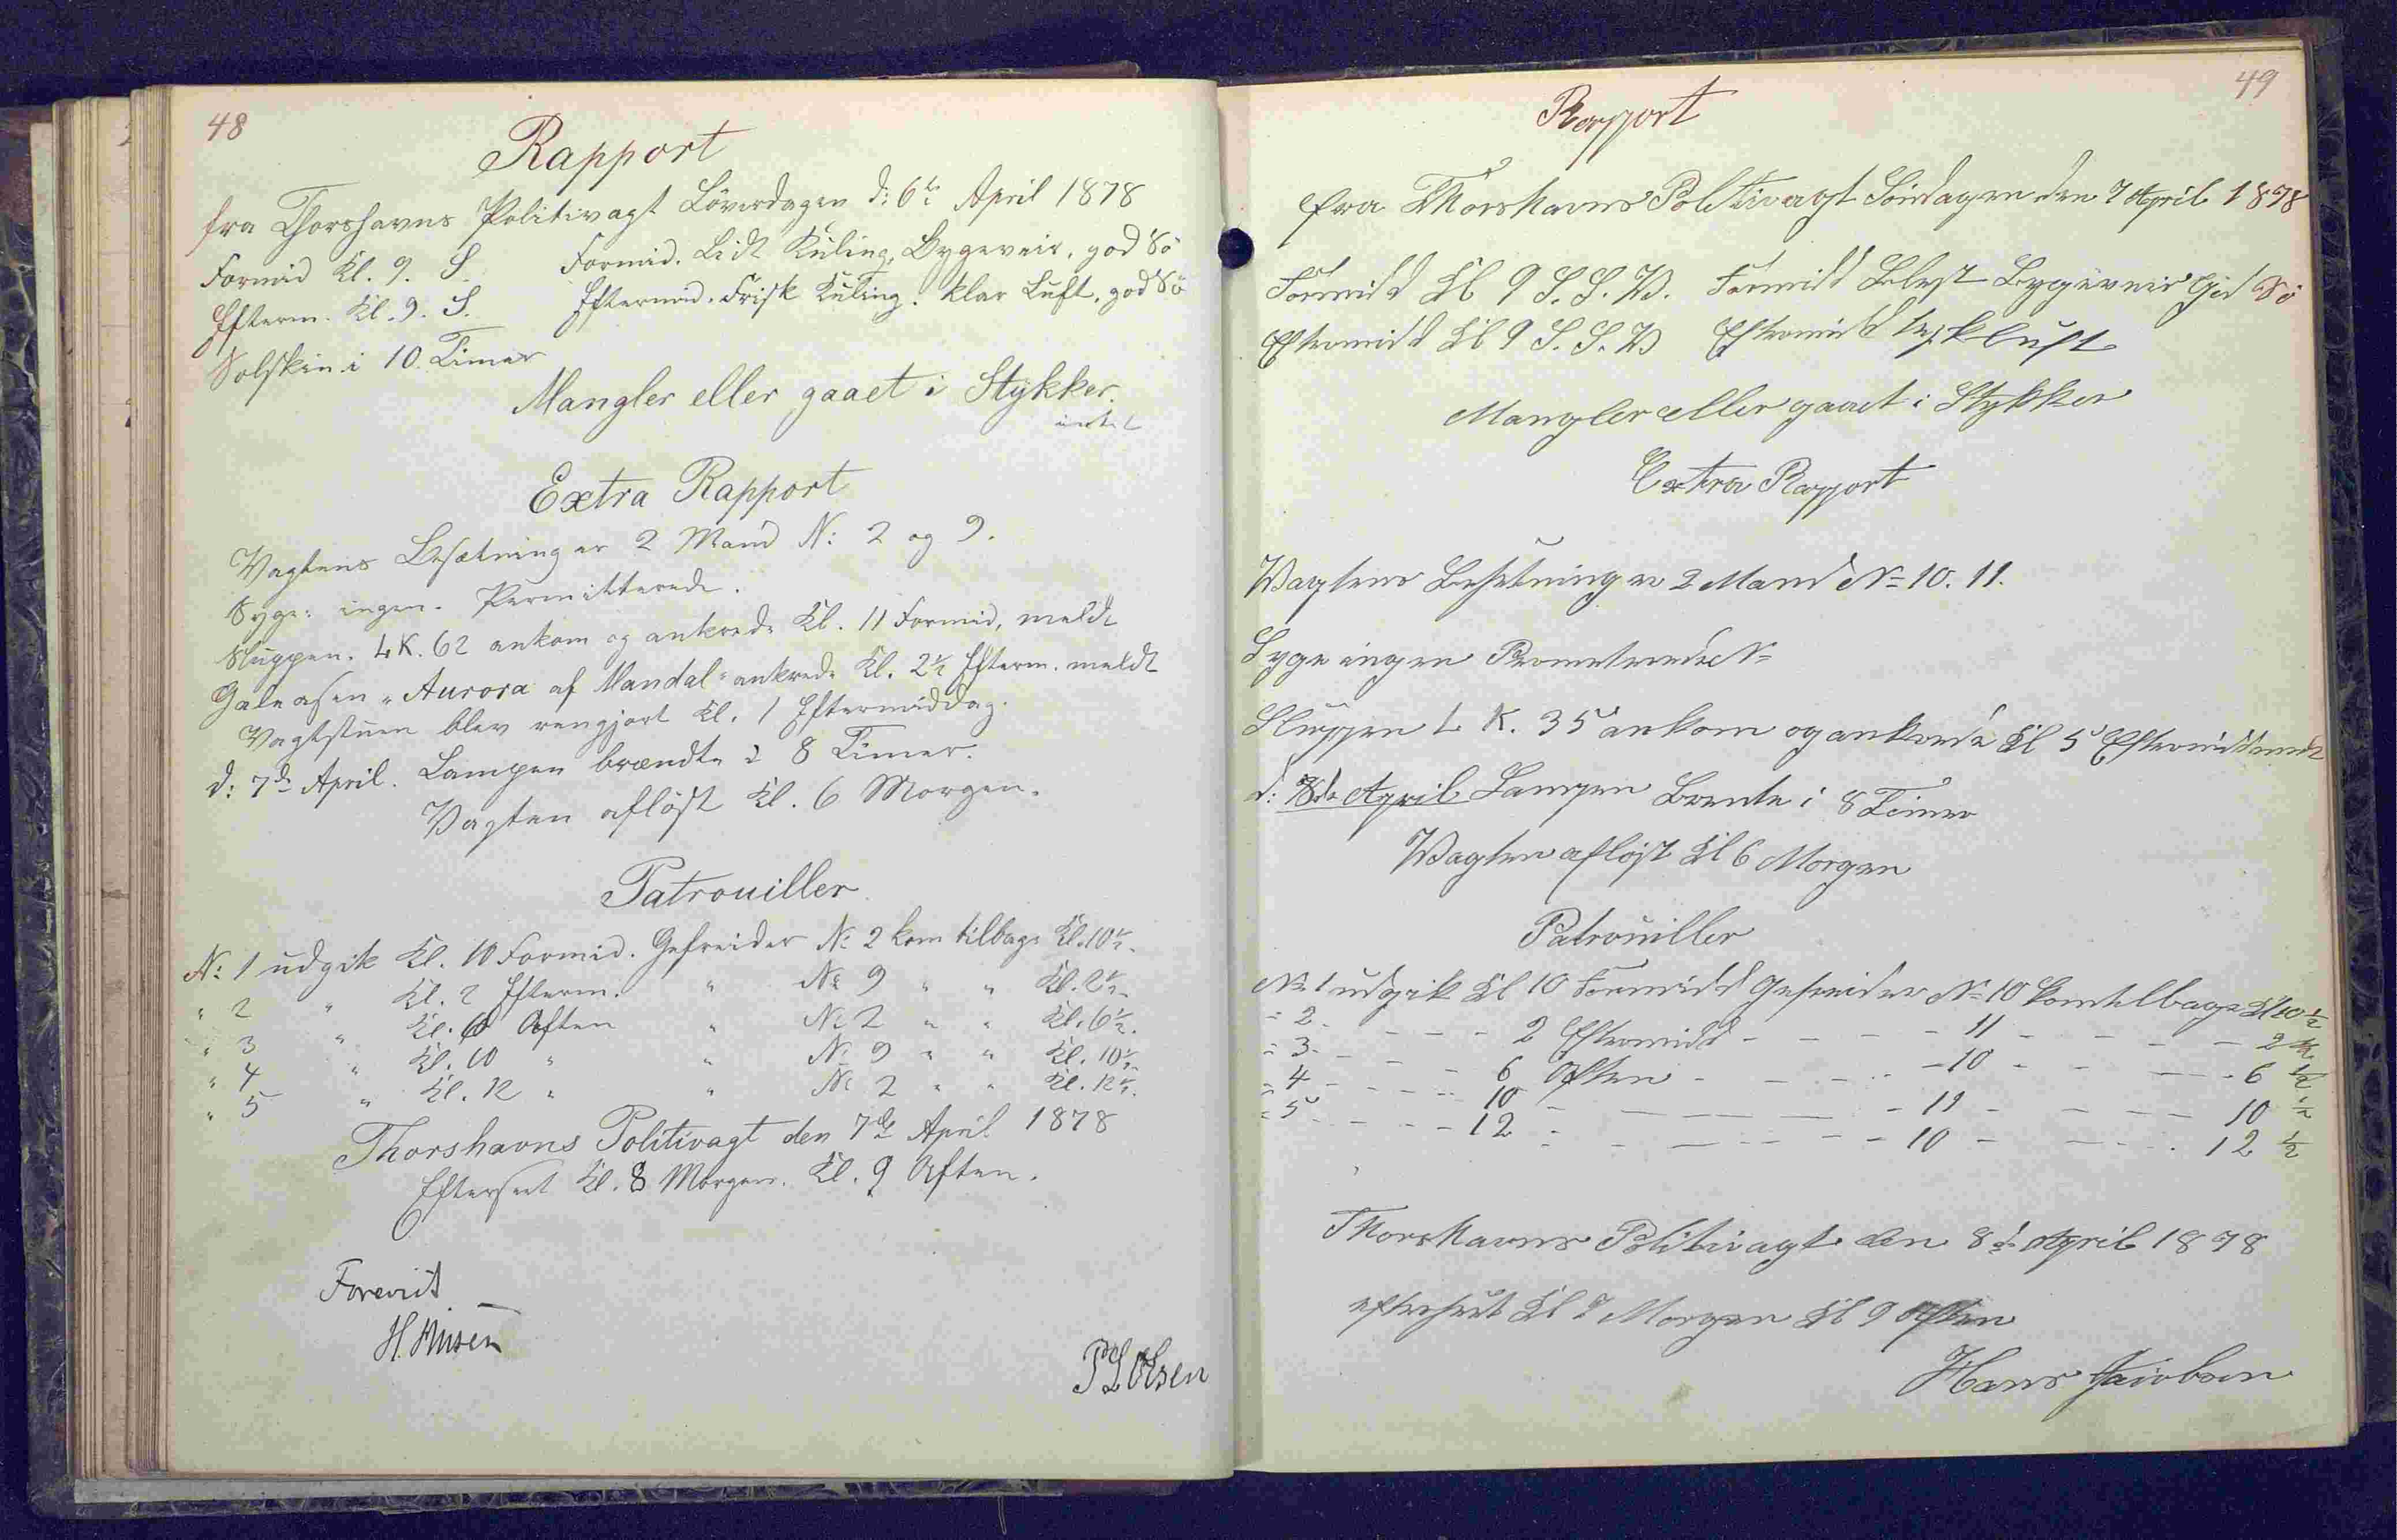 48
Rapport
fra Thorshavns Politivagt Löverdagen d: 6te April 1878
Formid Kl. 9. S. Formid. Lidt Kuling, Bygeveir, god Sö
Efterm. Kl. 9. S. Eftermid. Frisk Kuling. klar Luft, god Sö
Solskin i 10 Timer
Mangler eller gaaet i Stykker.
intet
Extra Rapport
Vagtens Besætning er 2 Mand No: 2 og 9.
Syge: ingen. Permitterede.
Sluppen. L.K. 62 ankom og ankrede Kl. 11 Formid, meldt
Galeasen "Aurora af Mandal" ankrede Kl. 2½ Efterm. meldt
Vagtstuen blev rengjort Kl. 1 Eftermiddag.
d: 7de April. Lampen brændte i 8 Timer.
Vagten aflöst Kl. 6 Morgen.
Patrouiller
No: 1 udgik Kl. 10 Formid. Gefreider No 2 kom tilbage Kl. 10½.
" 2 " Kl. 2 Efterm. " No 9 " " Kl. 2½.
" 3 " Kl. 6 Aften " No 2 " " Kl. 6½.
" 4 " Kl. 10 " " No 9 " " Kl. 10½.
" 5 " Kl. 12 " " No 2 " " Kl. 12½.
Thorshavns Politivagt den 7de April 1878
Efterseet Kl. 8 Morgen. Kl. 9 Aften.
Forevist
H.
P L Olsen
49
Rapport
fra Thorshavns Politivagt Söndagen den 7 April 1878
Formidd Kl 9 S. S. V. Formidd Blest Bygeveir God Sö
Eftromidd Kl 9 S. S. V Eftromidd tyk luft
Mangler eller gaaet i Stykker
Extra Rapport
Wagtens Besetning er 2 Mand No 10. 11.
Syge ingen No
Sluppen L K. 35 ankom og ankrede Kl 5 Eftromidd meldt
d: 8de April Lampen Brente i 8 Timer
Wagten aflöst Kl 6 Morgen
Patrouiller
No 1 udgik Kl 10 Formidd Gefreider No 10 kom telbage Kl 10 ½
- 2 - - - - 2 Eftromidd - - - - 11 - - - - 2 ½
- 3 - - - - 6 Aften - - - - 10 - - - - 6 ½
- 4 - - - - 10 - - - - 11 - - - - 10 ½
- 5 - - - - 12 - - - - 10 - - - - 12 ½
Thorshavns Politivagt den 8d April 1878
efterseet Kl Morgen Kl 9 Aften
Hans Jacobsen